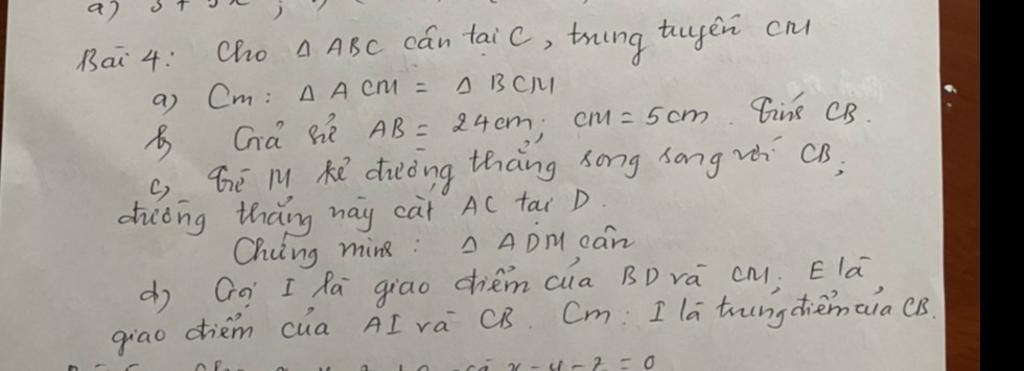 a) 3 + 5x ;
Bài 4: Cho Δ ABC cân tại C, trung tuyến CM
a) Cm: Δ ACM = Δ BCM
b) Giả sử AB = 24cm; CM = 5cm. Tính CB.
c) Từ M kẻ đường thẳng song song với CB;
đường thẳng này cắt AC tại D.
Chứng minh: Δ ADM cân
d) Gọi I là giao điểm của BD và CM; E là
giao điểm của AI và CB. Cm: I là trung điểm của CB.
x - y - z = 0